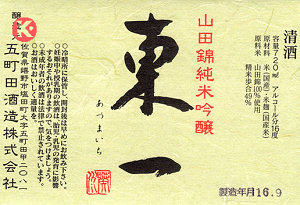 清酒
容量720㎖ アルコール分16度
原料米 米(国産)・米麹(国産米)
原料米 山田錦100%使用
精米歩合49%
山田錦純米吟醸
東一
あづまいち
○冷暗所に保管し、開封後は早めにお飲み下さい。
○妊娠中や授乳期の飲酒は、胎児・乳児の発育に影響
するおそれがありますので、気をつけましょう。
○未成年者の飲酒は法律で禁止されています。
○お酒はおいしく適量を。
佐賀県嬉野市塩田町大字五町田甲二〇八一
五町田酒造株式会社
製造年月16.9